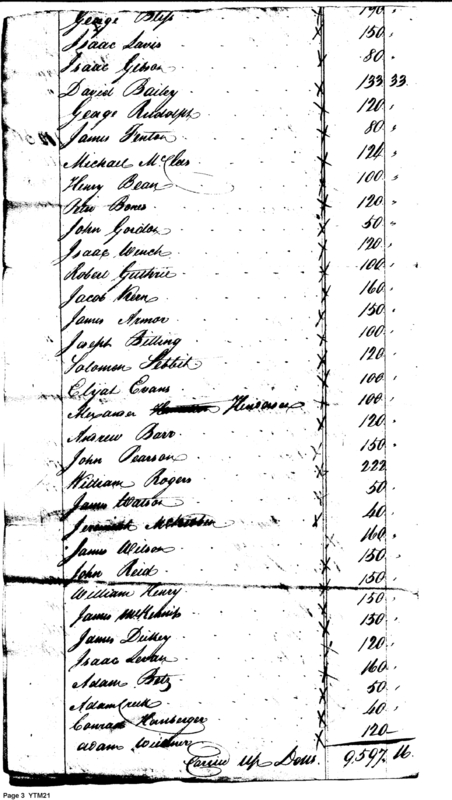 George Bliss 190 "
Isaac Davis 150 "
Isaac Gibson 80 "
David Bailey 133 33
George Rudolph 120 "
James Fenton 80 "
Michael McClees 124 "
Henry Bean 100 "
Peter Bones 120 "
John Gordon 50 "
Isaac Wench 120 "
Robert Guthrie 100 "
Jacob Kern 160 "
James Armor 150 "
Joseph Billing 100 "
Solomon 120 "
Elijah Evans 100 "
Alexander Henderson 100 "
Andrew Barr 120 "
John Pearson 150 "
William Rogers 222 "
James Watson 50 "
Jeremiah 40 "
James Wilson 160 "
John Reid 150 "
William Henry 150 "
James 150 "
James Dickey 150 "
Isaac Levan 120 "
Adam Betz 160 "
Adam 50 "
Conrad Hersberger 40 "
Adam Weidner 120
Carried up Dolls. 9.597. 16.
Page 3 YTM21